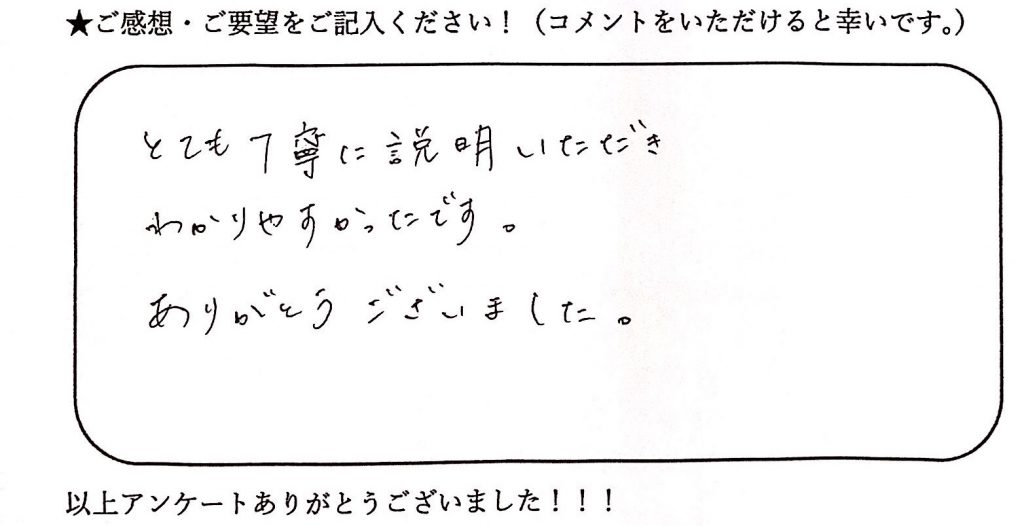 ★ご感想・ご要望をご記入ください！（コメントをいただけると幸いです。）
とても丁寧に説明いただき
わかりやすかったです。
ありがとうございました。
以上アンケートありがとうございました！！！